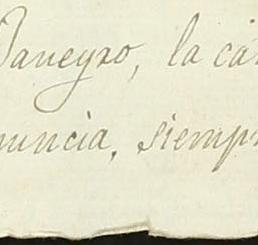 Janeyro, la ca
nuncia, siempr